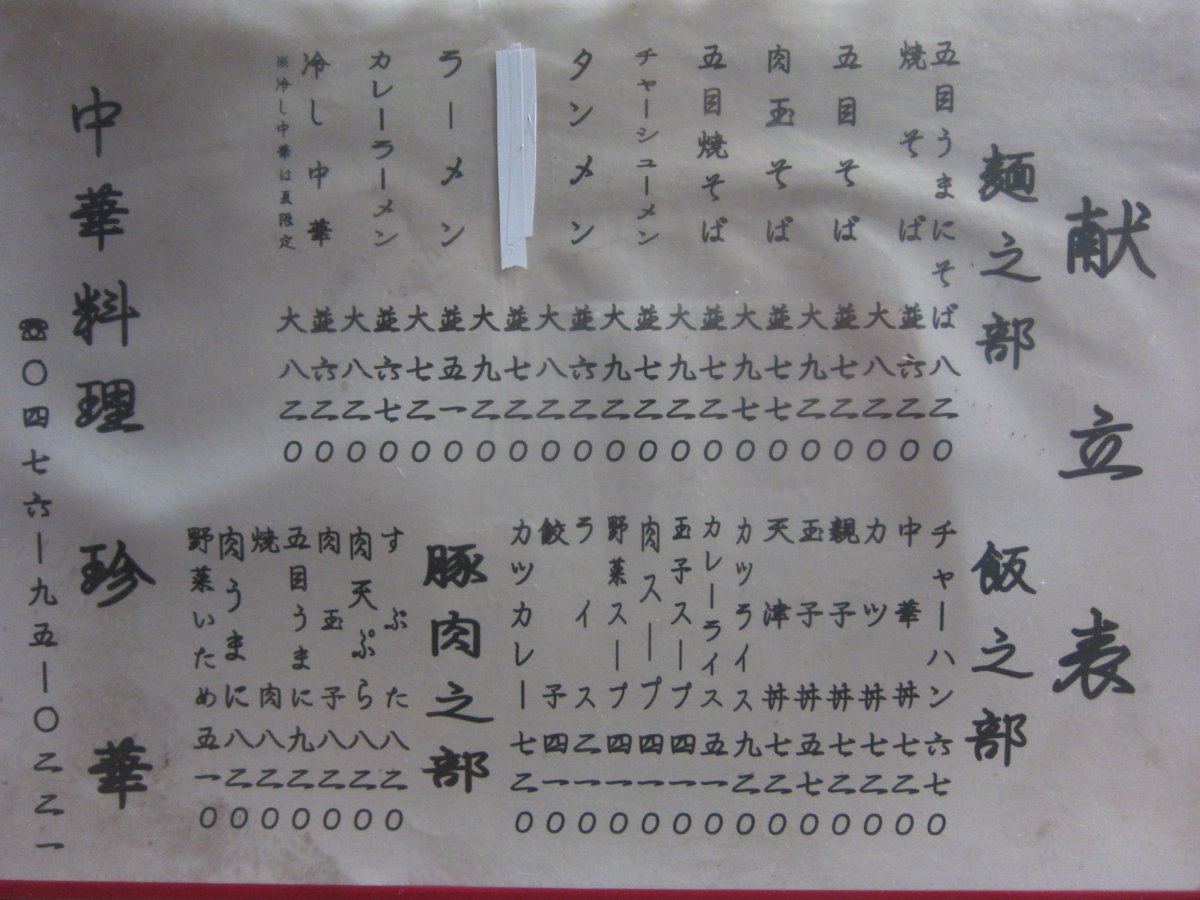 献立表
麺之部
五目うまにそば 八二0
焼そば 並六二0
大八二0
五目そば 並七二0
大九二0
肉玉そば 並七七0
大九七0
五目焼そば 並七二0
大九二0
チャーシューメン 並七二0
大九二0
タンメン 並六二0
大八二0
並七二0
大九二0
ラーメン 並五一0
大七二0
カレーラーメン 並六七0
大八二0
冷し中華 並六二0
大八二0
※冷し中華は夏限定
飯之部
チャーハン六七0
中華丼七二0
カツ丼七二0
親子丼七二0
玉子丼五七0
天津丼七二0
カツライス九二0
カレーライス五一0
玉子スープ四一0
肉スープ四一0
野菜スープ四一0
ライス二一0
餃子四一0
カツカレー七二0
豚肉之部
すぶた八二0
肉天ぷら八二0
肉玉子八二0
五目うまに九二0
焼肉八二0
肉うまに八二0
野菜いため五一0
中華料理 珍華
☎〇四七六ー九五ー〇二二一